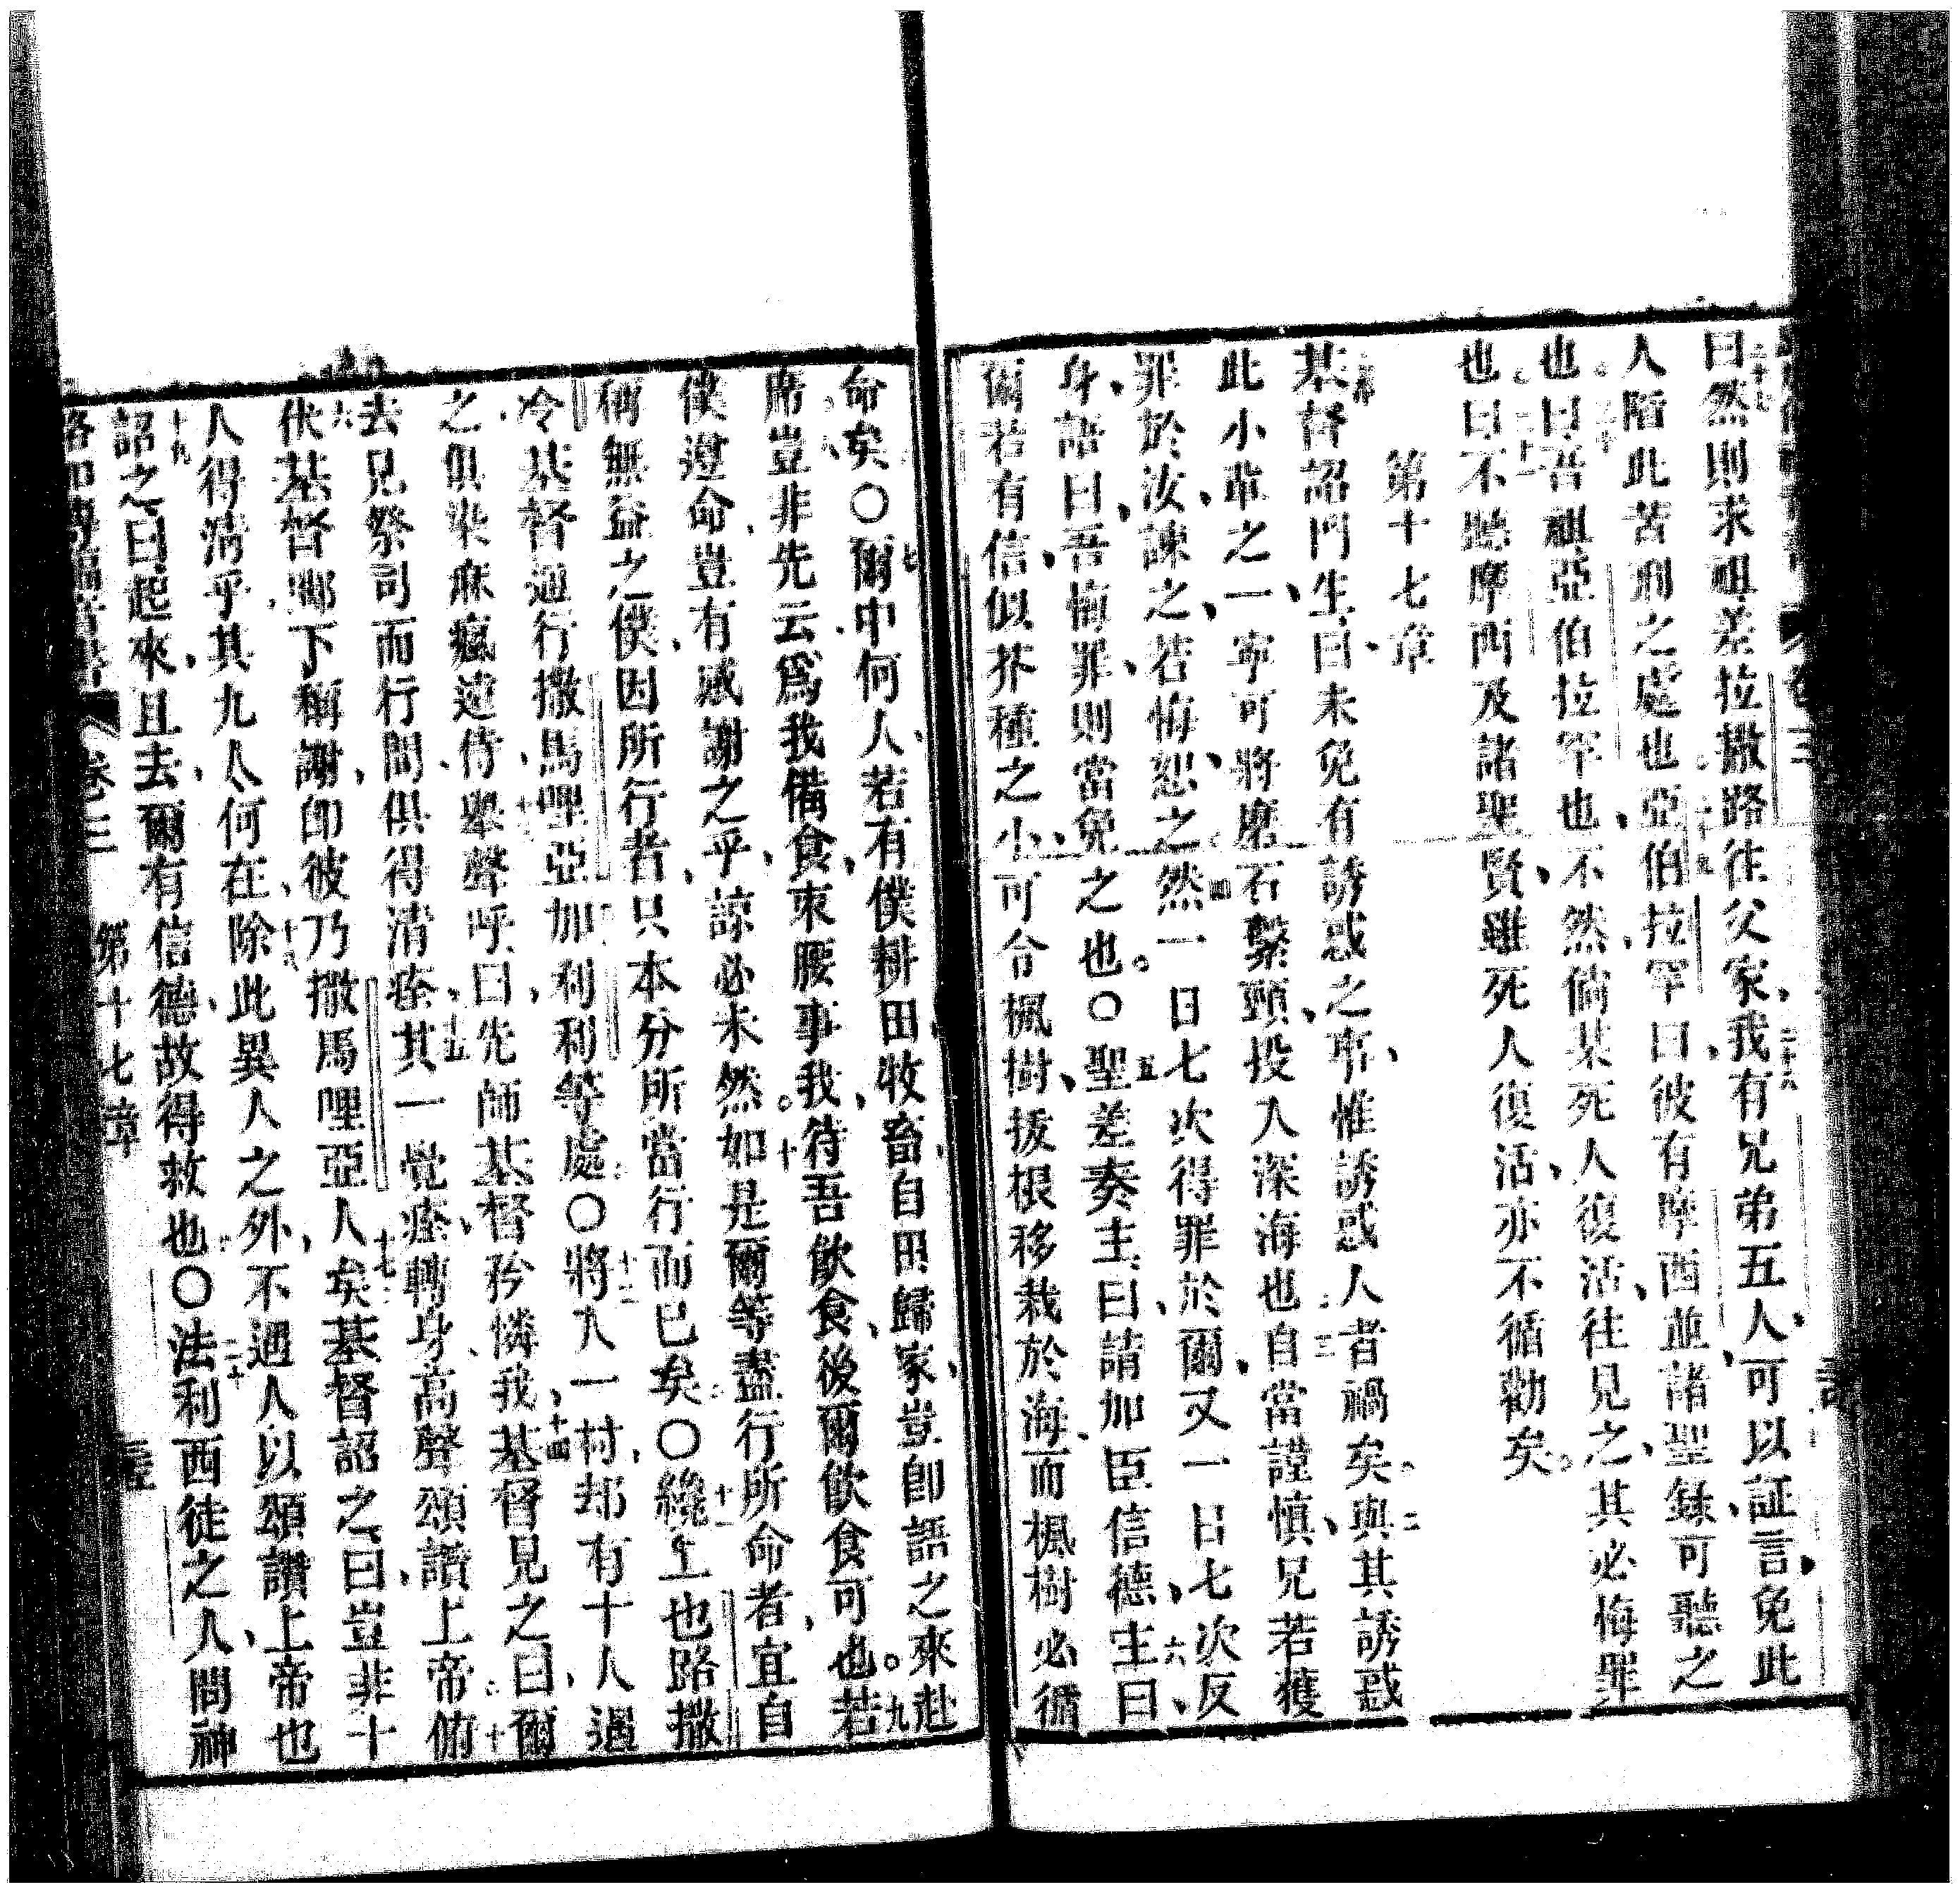 曰然則求祖差拉撒路往父家我有兄弟五人可以証言免此
人陷此苦刑之處也亞伯拉罕曰彼有摩西並諸聖錄可聽之
也曰吾祖亞伯拉罕也不然倘某死人復活往見之其必悔罪
也曰不聽摩西及諸聖賢雖死人復活亦不循勸矣
第十七章
基督詔門生曰未免有誘惑之事惟誘惑人者禍矣與其誘惑
此小輩之一寧可將磨石繫頸投入深海也自當謹慎兄若獲
罪於汝諫之若悔恕之然一日七次得罪於爾又一日七次反
身語曰吾悔罪則當免之也〇聖差奏主曰請加臣信德主曰
爾若有信似芥種之小可令楓樹拔根移栽於海而楓樹必循
命矣〇爾中何人若有僕耕田牧畜自田歸家豈即語之來赴
席豈非先云爲我備食束腰事我待吾飲食後爾飲食可也若
僕遵命豈有感謝之乎諒必未然如是爾等盡行所命者宜自
稱無益之僕因所行者只本分所當行而已矣〇纔上也路撒
冷基督通行撒馬哩亞加利利等處〇將入一村却有十人過
之俱染麻瘋遠侍舉聲呼曰先師基督矜憐我基督見之曰爾
去見祭司而行間俱得清痊其一覺痊轉身高聲頌讚上帝俯
伏基督鄉下稱謝卽彼乃撒馬哩亞人矣基督詔之曰豈非十
人得清乎其九人何在除此異人之外不過人以頌讚上帝也
詔之曰起來且去爾有信德故得救也〇法利西徒之人問神
卷三 第十七章